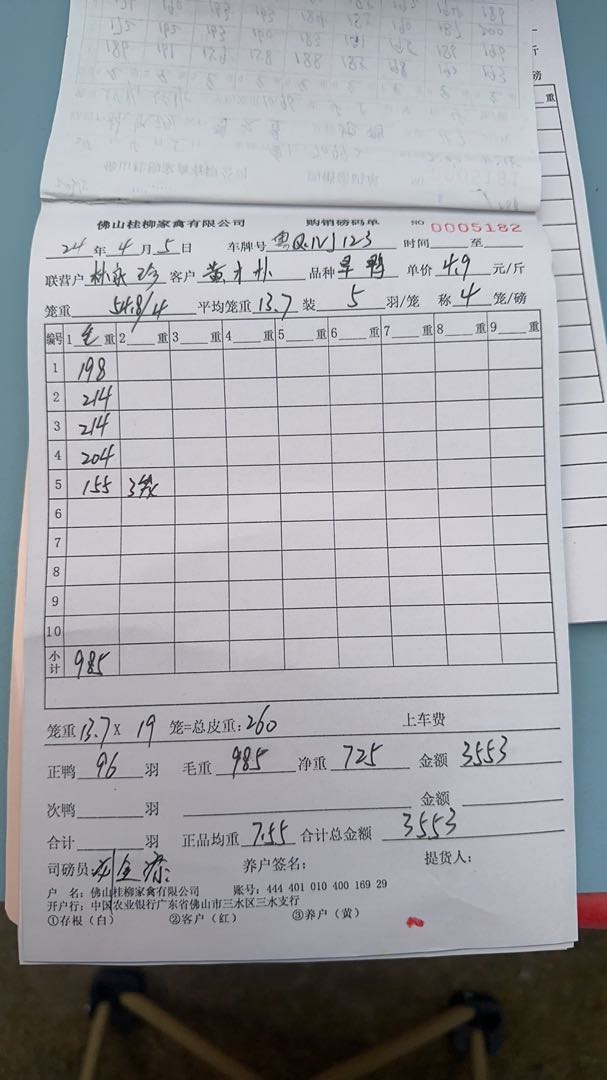 佛山桂柳家禽有限公司 购销磅码单 № 0005182
24年4月5日 车牌号 粤Q·IVJ123 时间 至
联营户 林永珍 客户 黄才朴 品种 旱鸭 单价 4.9 元/斤
笼重 54.8/4 平均笼重 13.7 装 5 羽/笼 称 4 笼/磅
编号 1 毛 重 2 重 3 重 4 重 5 重 6 重 7 重 8 重 9 重
1 198
2 214
3 214
4 204
5 155 3笼
6
7
8
9
10
小计 985
笼重 13.7 X 19 笼=总皮重: 260 上车费
正鸭 96 羽 毛重 985 净重 725 金额 3553
次鸭 羽 金额
合计 羽 正品均重 7.55 合计总金额 3553
司磅员: 养户签名: 提货人:
户 名: 佛山桂柳家禽有限公司 账号: 444 401 010 400 169 29
开户行: 中国农业银行广东省佛山市三水区三水支行
①存根(白) ②客户(红) ③养户(黄)